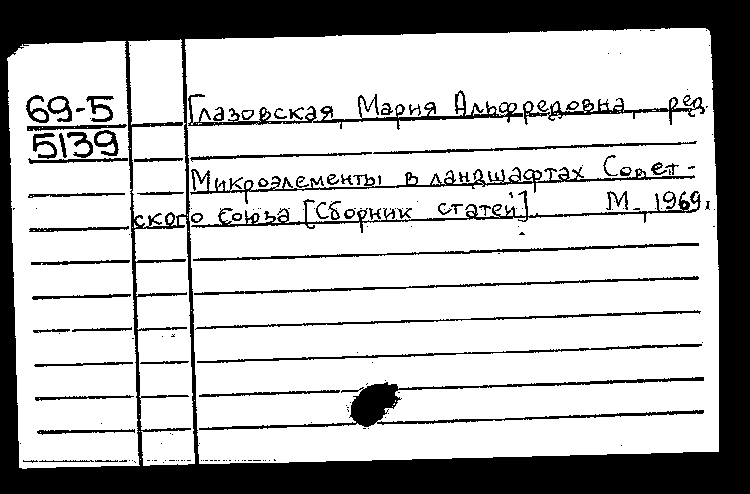 69-5
5139
Глазовская, Мария Альфредовна, ред.
Микроэлементы в ландшафтах Совет-
ского Союза [Сборник статей]. М., 1969.